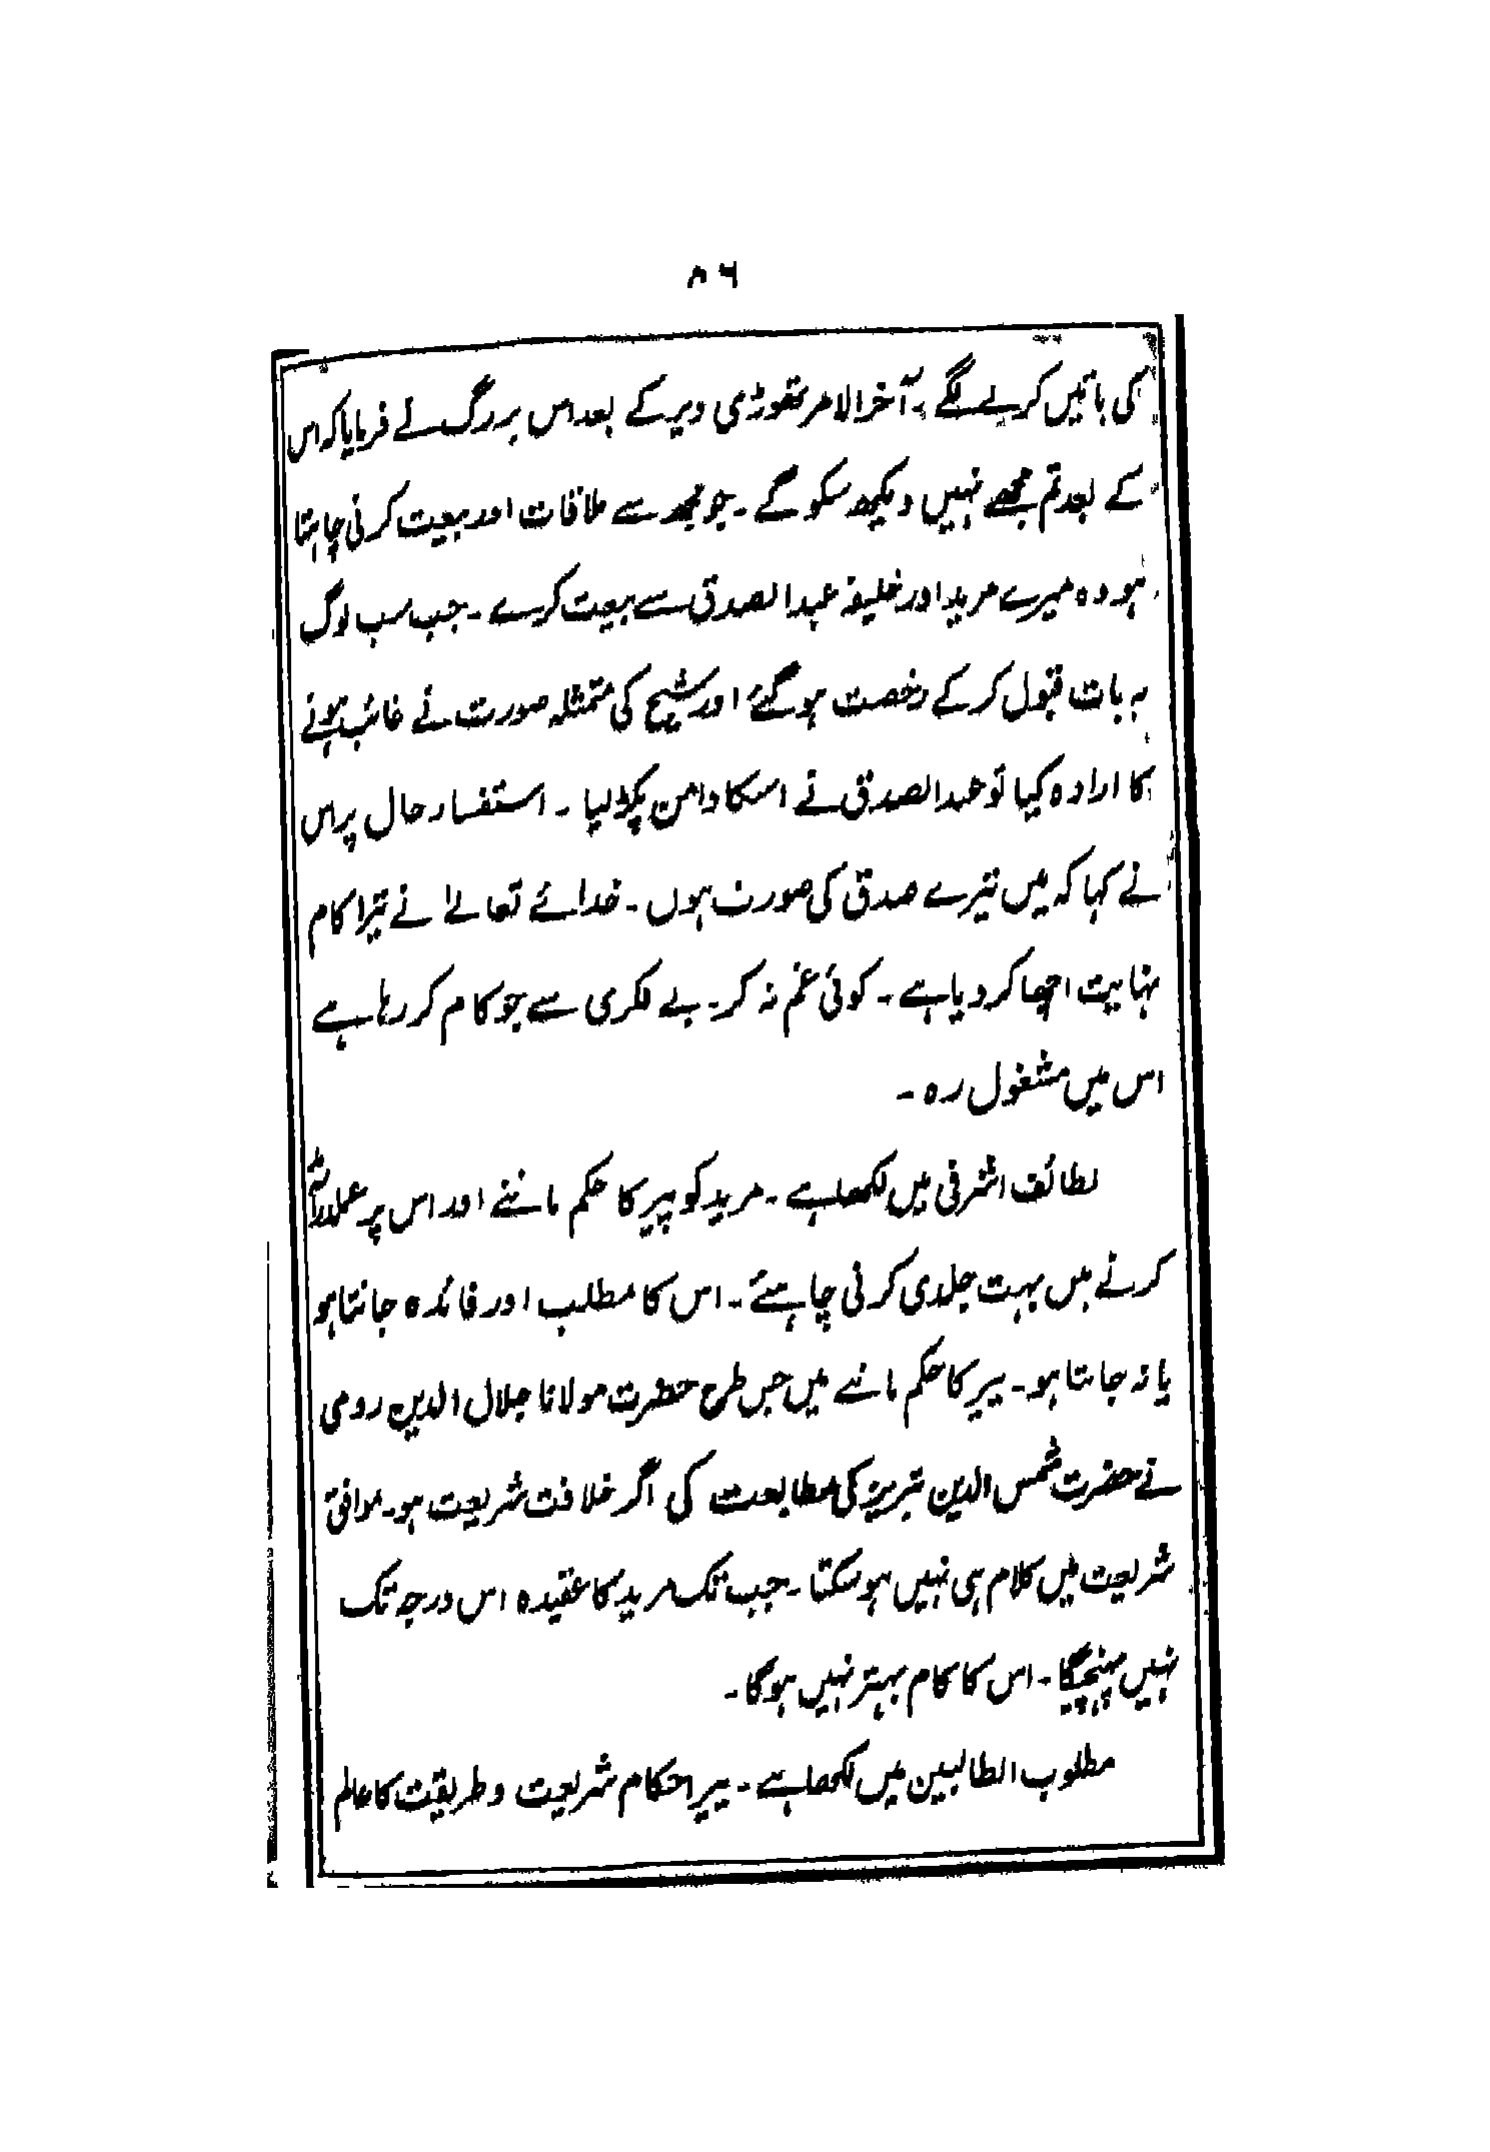 ۵۶
کی باتیں کرنے لگے۔ آخر الامر تھوڑی دیر کے بعد اس بزرگ نے فرمایا کہ اس
کے بعد تم مجھے نہیں دیکھ سکو گے۔ جو مجھ سے ملاقات اور بیعت کرنی چاہتا
ہو وہ میرے مرید اور خلیفہ عبد الصدق سے بیعت کرے۔ جب سب لوگ
یہ بات قبول کر کے رخصت ہو گئے اور شیخ کی متمثلہ صورت نے غائب ہونے
کا ارادہ کیا تو عبد الصدق نے اسکا دامن پکڑ لیا۔ استفسار حال پر اس
نے کہا کہ میں تیرے صدق کی صورت ہوں۔ خدائے تعالےٰ نے تیرا کام
نہایت اچھا کر دیا ہے۔ کوئی غم نہ کر۔ بے فکری سے جو کام کر رہا ہے
اس میں مشغول رہ۔
لطائف اشرفی میں لکھا ہے۔ مرید کو پیر کا حکم ماننے اور اس پر عملدرآمد
کرنے میں بہت جلدی کرنی چاہئے۔ اس کا مطلب اور فائدہ جانتا ہو
یا نہ جانتا ہو۔ پیر کا حکم ماننے میں جس طرح حضرت مولانا جلال الدین رومی
نے حضرت شمس الدین تبریز کی مطابعت کی اگر خلاف شریعت ہو۔ موافق
شریعت میں کلام ہی نہیں ہو سکتا۔ جب تک مرید کا عقیدہ اس درجہ تک
نہیں پہنچیگا۔ اس کا کام بہتر نہیں ہوگا۔
مطلوب الطالبین میں لکھا ہے۔ پیر احکام شریعت و طریقت کا عالم